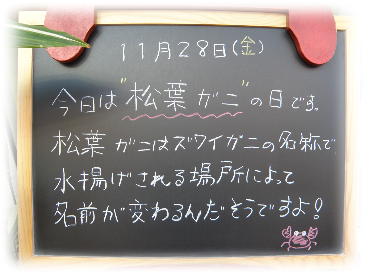 11月28日(金)
今日は"松葉ガニ"の日です。
松葉ガニはズワイガニの名称で
水揚げされる場所によって
名前が変わるんだそうですよ!